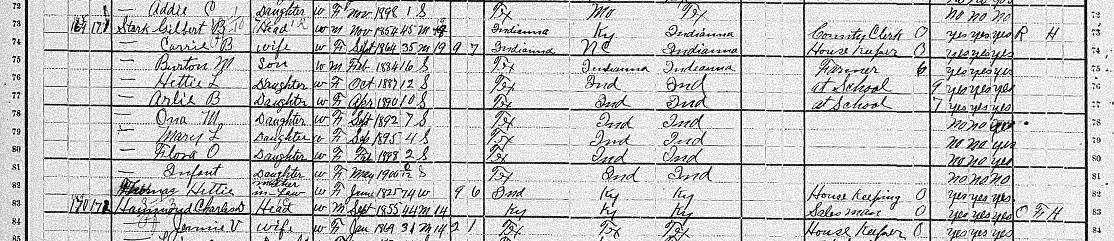 72 — Addie C Daughter W F Nov 1898 1 S Tx Mo Tx no no no 72
171 Stark Gilbert B Head W M Nov 1854 45 M 19 Indianna Ky Indianna County Clerk 0 yes yes yes R H 73
74 — Carrie B wife W F Sept 1864 35 M 19 9 7 Indianna NC Indianna House Keeper 0 yes yes yes 74
75 — Burton M Son W M Feb 1884 16 S Tx Indianna Indianna Farmer 6 yes yes yes 75
76 — Hettie L Daughter W F Oct 1887 12 S Tx Ind Ind at School 9 yes yes yes 76
77 — Arlie B Daughter W F Apr 1890 10 S Tx Ind Ind at School 7 yes yes yes 77
78 — Ona M Daughter W F Sept 1892 7 S Tx Ind Ind no no 78
79 — Mary L Daughter W F Sep 1895 4 S Tx Ind Ind no no no 79
80 — Flora O Daughter W F Feb 1898 2 S Tx Ind Ind no no no 80
81 — Infant Daughter W F May 1900 S Tx Ind Ind no no no 81
82 Thomas Hettie mother in-law W F June 1825 74 W 9 6 Ind Ky Ky House Keeping 0 yes yes yes 82
83 170 172 Hammond Charles D Head W M Sept 1855 44 M 14 Ky Ky Ky Sales man 0 yes yes yes O F H 83
84 — Jennie V wife W F Jan 1869 31 M 14 2 1 Tx Tx Tx House Keeper 0 yes yes yes 84
85